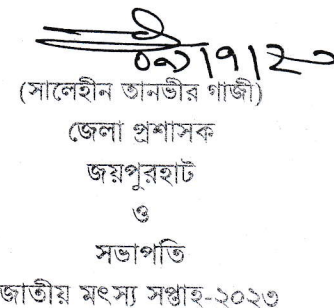 (সালেহীন তানভীর গাজী)
জেলা প্রশাসক
জয়পুরহাট
ও
সভাপতি
জাতীয় মৎস্য সপ্তাহ-২০২৩